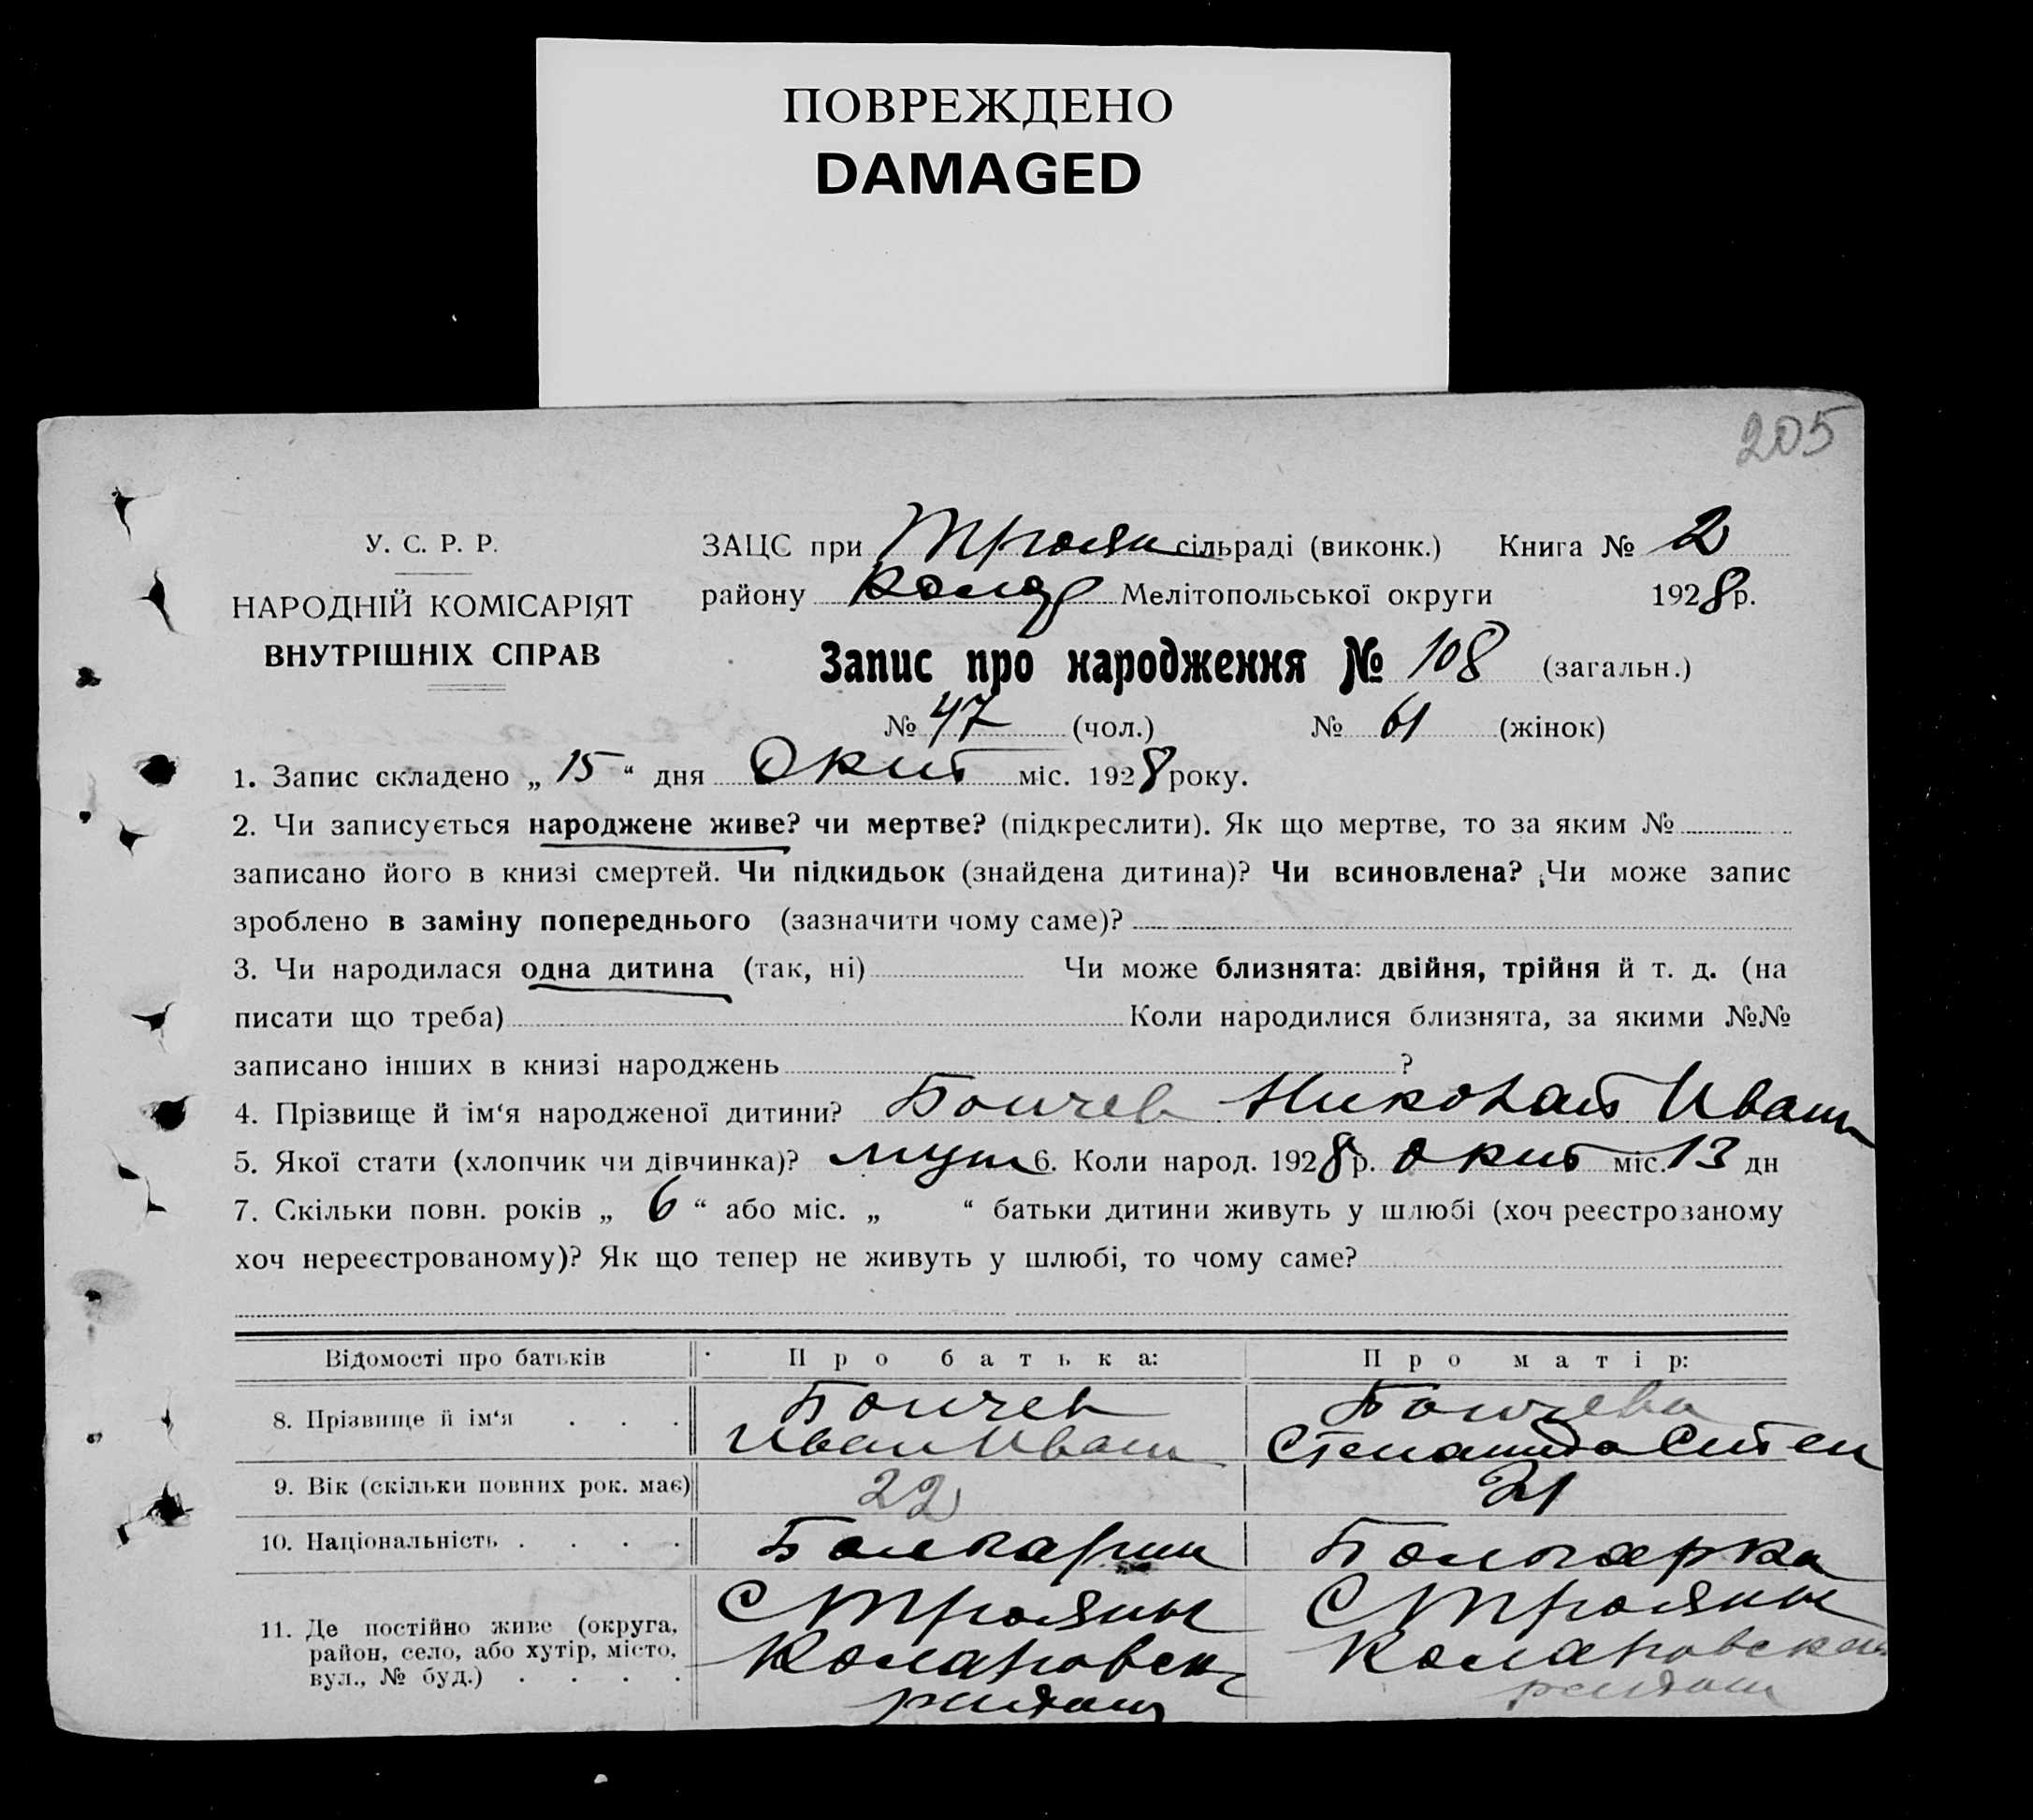 ПОВРЕЖДЕНО
DAMAGED
205
У. С. Р. Р.
НАРОДНІЙ КОМІСАРІЯТ
ВНУТРІШНІХ СПРАВ
ЗАЦС при Троян сільраді (виконк.) Книга № 2
району Колар Мелітопольської округи 1928 р.
Запис про народження № 108 (загальн.)
№ 47 (чол.) № 61 (жінок)
1. Запис складено „ 15 “ дня Окт міс. 1928 року.
2. Чи записується народжене живе? чи мертве? (підкреслити). Як що мертве, то за яким №
записано його в книзі смертей. Чи підкидьок (знайдена дитина)? Чи всиновлена? Чи може запис
зроблено в заміну попереднього (зазначити чому саме)?
3. Чи народилася одна дитина (так, ні) Чи може близнята: двійня, трійня й т. д. (на
писати що треба) Коли народилися близнята, за якими №№
записано інших в книзі народжень ?
4. Прізвище й ім‘я народженої дитини? Бончев Николай Иван
5. Якої стати (хлопчик чи дівчинка)? муж 6. Коли народ. 1928 р. Окт міс. 13 дн
7. Скільки повн. років „ 6 “ або міс. „ “ батьки дитини живуть у шлюбі (хоч реєстрозаному
хоч нереєстрованому)? Як що тепер не живуть у шлюбі, то чому саме?
Відомості про батьків Про батька: Про матір:
8. Прізвище й ім‘я . . . Бончев Бончева
Иван Иван Степанида
9. Вік (скільки повних рок. має) 22 21
10. Національність . . . . Болгарин Болгарка
11. Де постійно живе (округа, С Трояны С Трояны
район, село, або хутір, місто, Коларовск Коларовского
вул., № буд.) . . . . района района